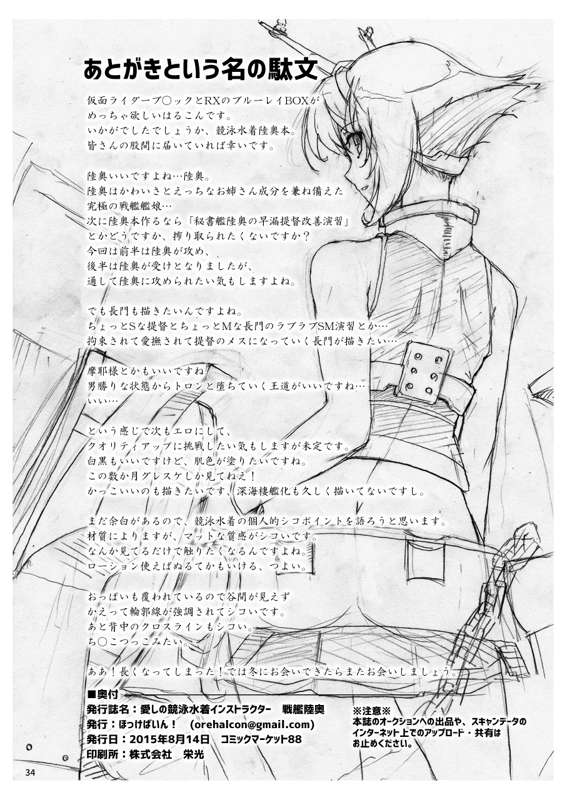 あとがきという名の駄文
仮面ライダーブ○ックとRXのブルーレイBOXが
めっちゃ欲しいはるこんです。
いかがでしたでしょうか、競泳水着陸奥本。
皆さんの股間に届いていれば幸いです。
陸奥いいですよね…陸奥。
陸奥はかわいさとえっちなお姉さん成分を兼ね備えた
究極の戦艦艦娘…
次に陸奥本作るなら「秘書艦陸奥の早漏提督改善演習」
とかどうですか、搾り取られたくないですか?
今回は前半は陸奥が攻め、
後半は陸奥が受けとなりましたが、
通して陸奥に攻められたい気もしますよね。
でも長門も描きたいんですよね。
ちょっとSな提督とちょっとMな長門のラブラブSM演習とか…
拘束されて愛撫されて提督のメスになっていく長門が描きたい…
摩耶様とかもいいですね
男勝りな状態からトロンと堕ちていく王道がいいですね…
いい…
という感じで次もエロにして、
クオリティアップに挑戦したい気もしますが未定です。
白黒もいいですけど、肌色が塗りたいですね。
この数か月グレスケしか見てねえ!
かっこいいのも描きたいです、深海棲艦化も久しく描いてないですし。
まだ余白があるので、競泳水着の個人的シコポイントを語ろうと思います。
材質によりますが、マットな質感がシコいです。
なんか見てるだけで触りたくなるんですよね。
ローション使えばぬるてかもいける、つよい。
おっぱいも覆われているので谷間が見えず
かえって輪郭線が強調されてシコいです。
あと背中のクロスラインもシコい。
ち○こつっこみたい。
ああ!長くなってしまった!では冬にお会いできたらまたお会いしましょう。
■奥付
発行誌名:愛しの競泳水着インストラクター 戦艦陸奥
発行:ほっけばいん! (orehalcon@gmail.com)
発行日:2015年8月14日 コミックマーケット88
印刷所:株式会社 栄光
※注意※
本誌のオークションへの出品や、スキャンデータの
インターネット上でのアップロード・共有は
お止めください。
34